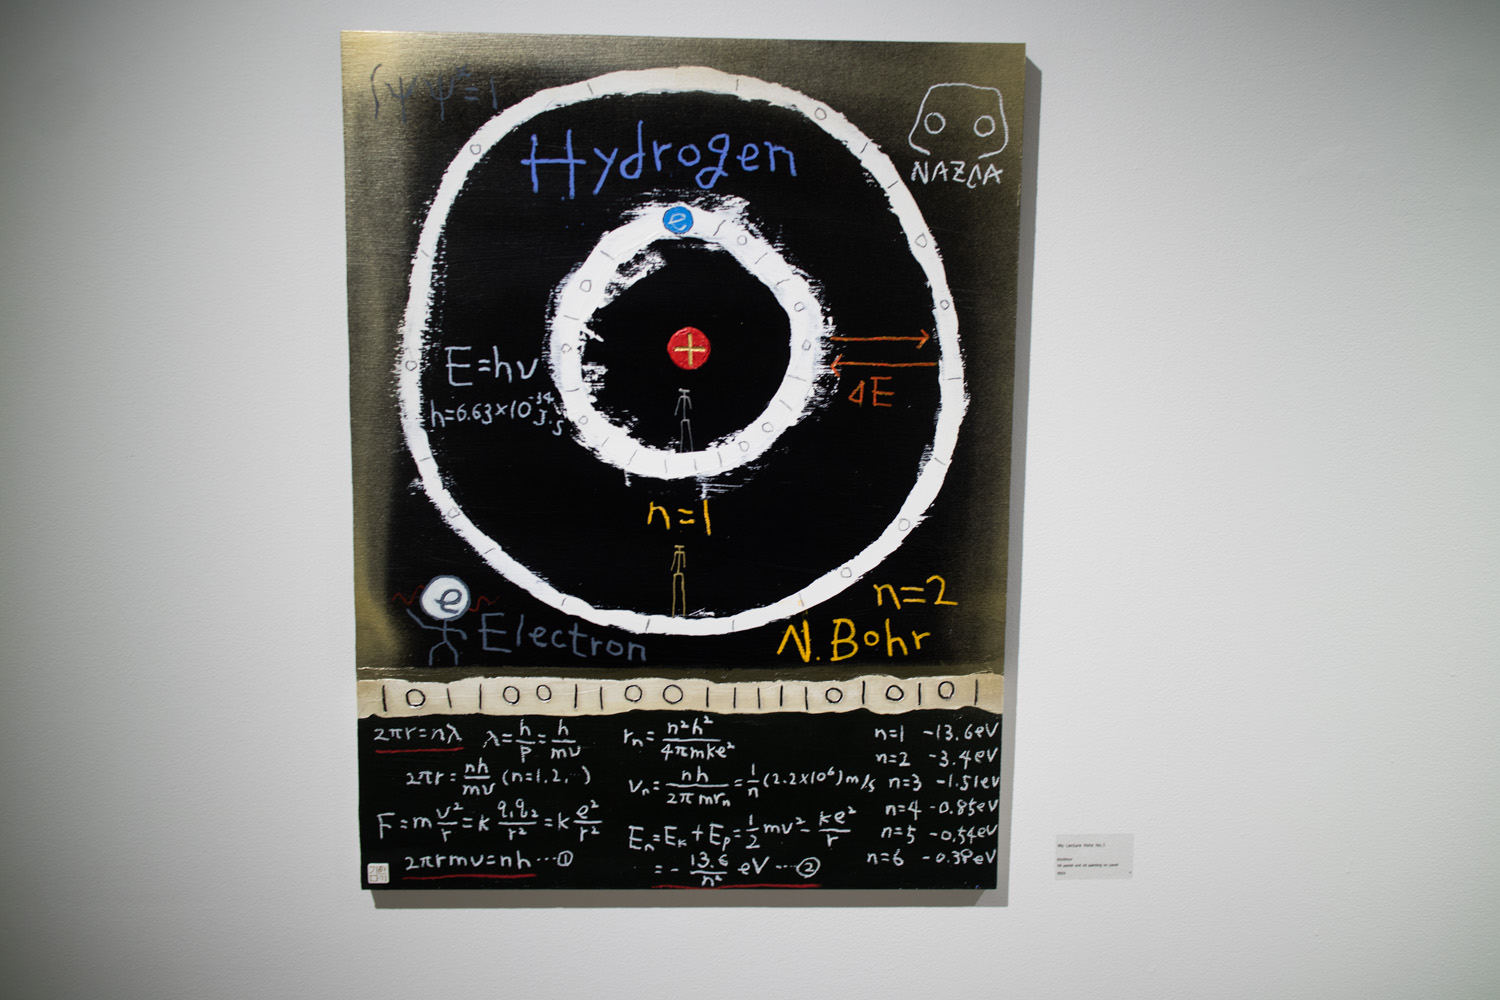 ∫ψψ*=1
NAZCA
Hydrogen
e
+
E=hν
h=6.63×10⁻³⁴J·s
ΔE
n=1
n=2
N. Bohr
e
Electron
| 0 | | 0 0 | | 0 0 | | | | | 0 | 0 | 0 |
2πr=nλ λ=h/p=h/mv
2πr=nh/mv (n=1,2,…)
F=m v²/r=k q₁q₂/r²=k e²/r²
2πrmv=nh …①
rₙ=n²h²/4π²mke²
vₙ=nh/2πmrₙ=1/n(2.2×10⁶)m/s
Eₙ=Eₖ+Eₚ=1/2mv²-ke²/r
=-13.6/n² eV …②
n=1 -13.6eV
n=2 -3.4eV
n=3 -1.51eV
n=4 -0.85eV
n=5 -0.54eV
n=6 -0.38eV
My Lecture Note No.1